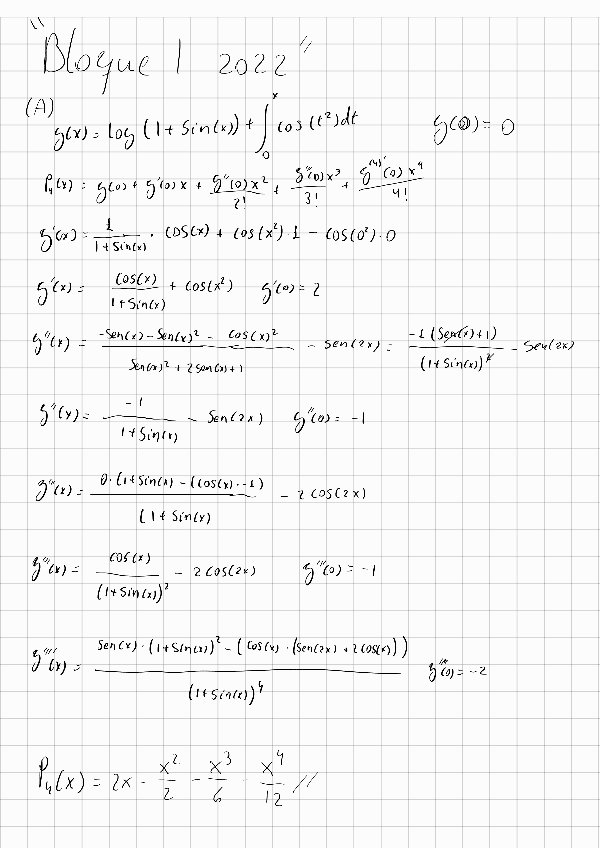 "Bloque 1 2022"
(A)
g(x) = log (1 + Sin(x)) + ∫₀ˣ cos(t²)dt g(0) = 0
P₄(x) = g(0) + g'(0)x + g''(0)x²/2! + g'''(0)x³/3! + g⁽⁴⁾'(0)x⁴/4!
g'(x) = 1/(1+Sin(x)) · cos(x) + cos(x²)·1 - cos(0²)·0
g'(x) = cos(x)/(1+Sin(x)) + cos(x²) g'(0) = 2
g''(x) = (-Sen(x) - Sen(x)² - cos(x)²)/(Sen(x)² + 2sen(x)+1) - sen(2x) = -1(Sen(x)+1)/(1+Sin(x))² - Sen(2x)
g''(x) = -1/(1+Sin(x)) - Sen(2x) g''(0) = -1
g'''(x) = (0·(1+Sin(x) - (cos(x)·-1))/(1+Sin(x) - 2cos(2x)
g'''(x) = cos(x)/(1+Sin(x))² - 2cos(2x) g'''(0) = -1
g''''(x) = (Sen(x)·(1+Sin(x))² - (cos(x)·(Sen(2x)+2cos(x))))/(1+Sin(x))⁴ g''''(0) = -2
P₄(x) = 2x - x²/2 - x³/6 - x⁴/12 //